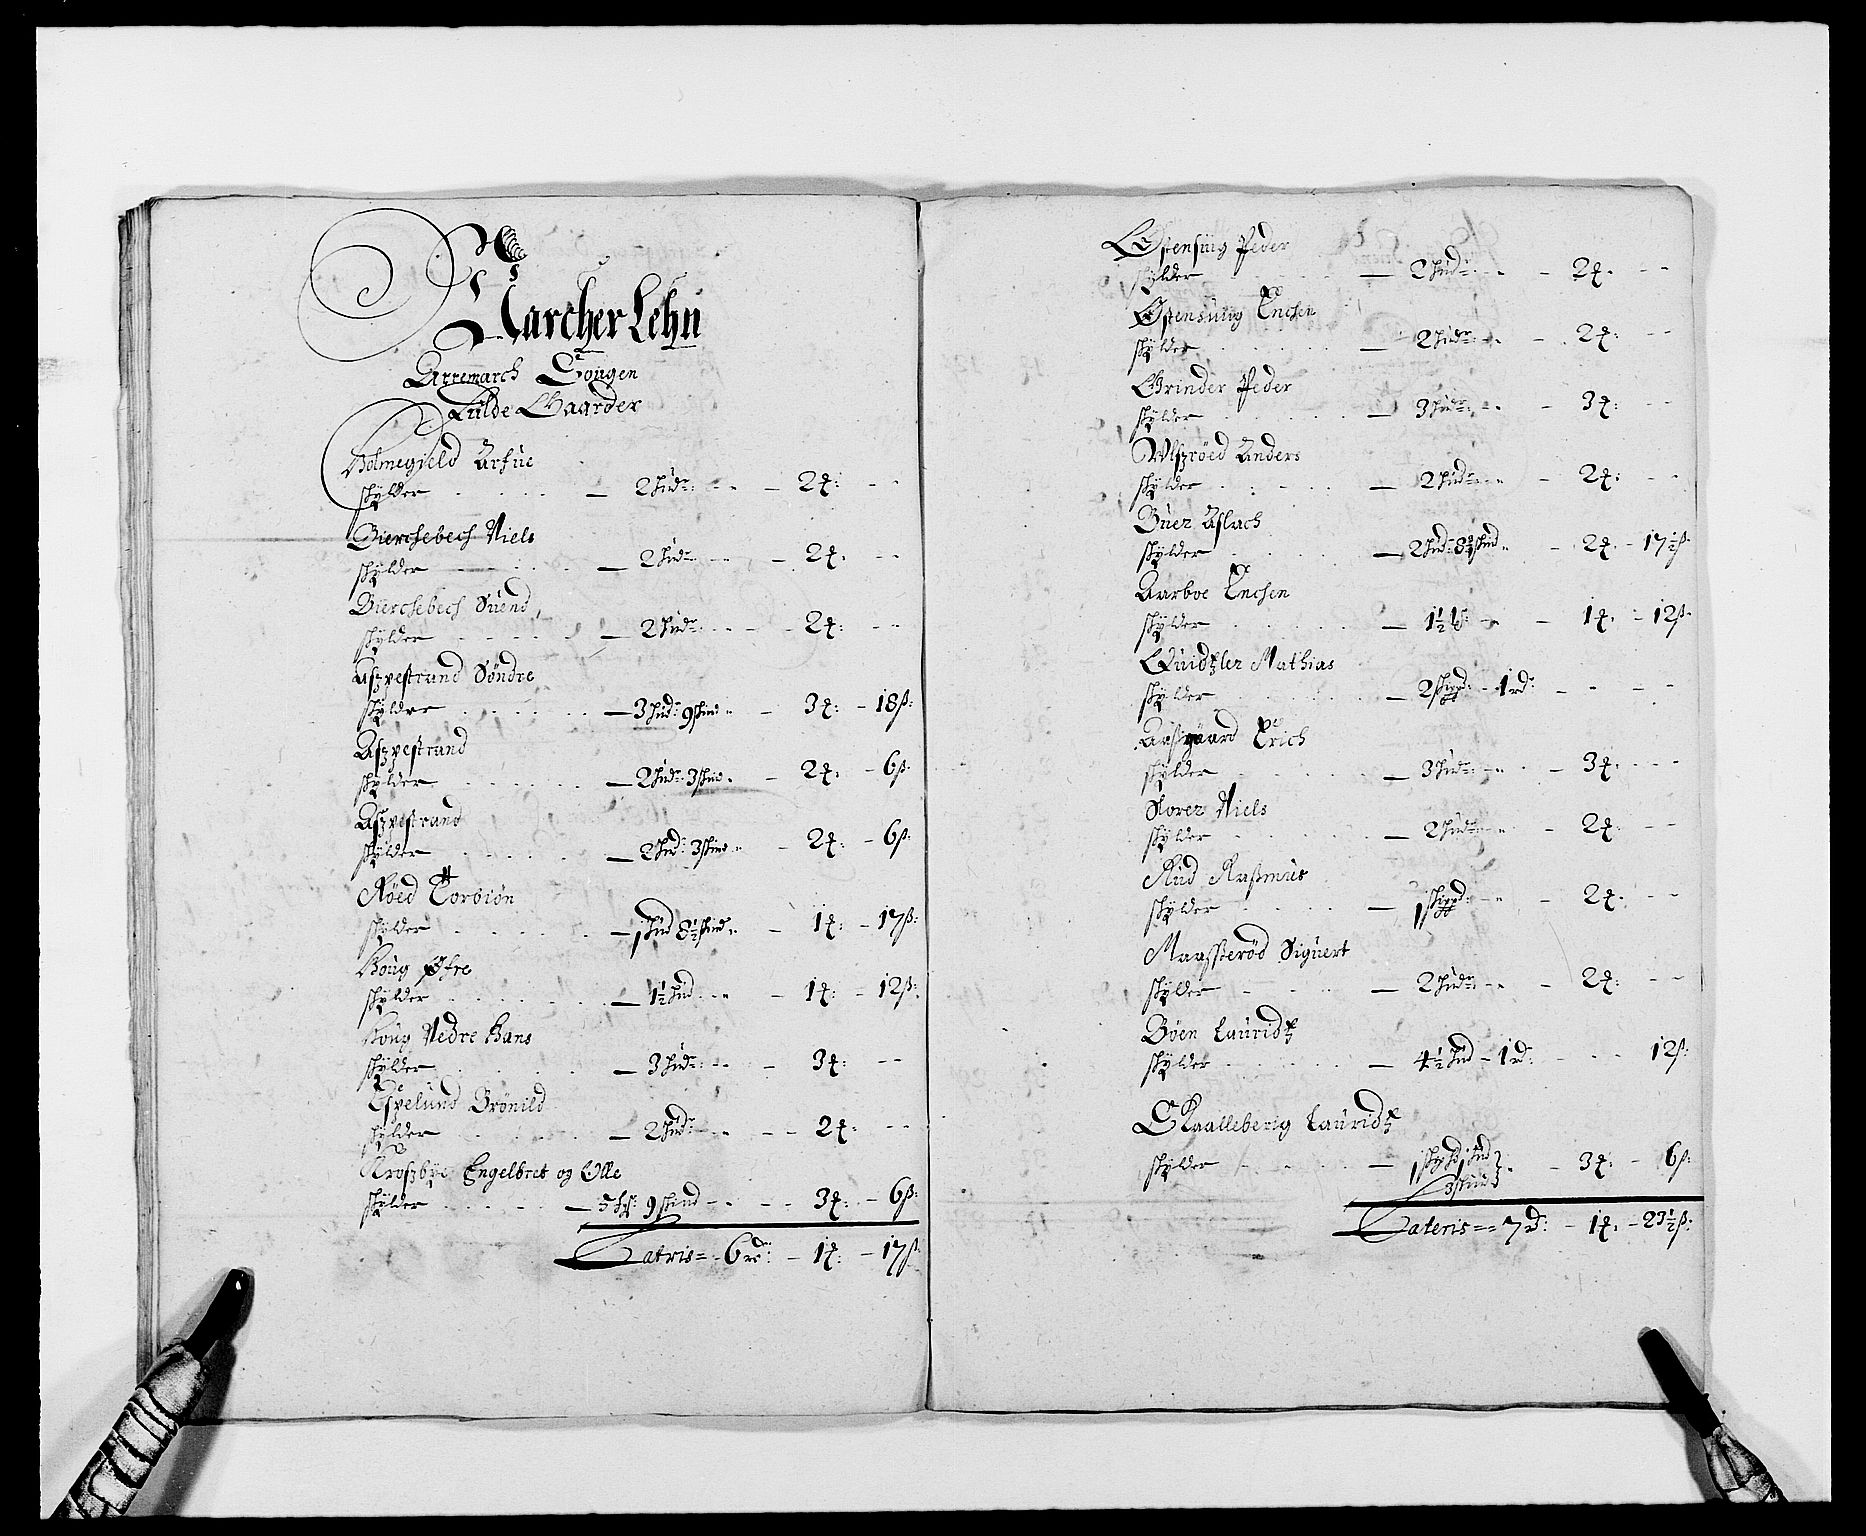 Marcher Lehn
Arremarch Sougen
Fulde Gaarder
Holmegield Arfue
skylder — 2 hud: — 2 ℔:
Bierchebech Niels
skylder — 2 hud: — 2 ℔:
Bierchebech Suend
skylder — 2 hud: — 2 ℔:
Aszpestrand Søndre
skylder — 3 hud: 9 skind — 3 ℔: – 18 ß:
Aszpestrand
skylder — 2 hud: 3 skind — 2 ℔: – 6 ß:
Aszpestrand
skylder — 2 hud: 3 skind — 2 ℔: – 6 ß:
Røed Torbiøn
skylder — 1 hud 8½ skind — 1 ℔: – 17 ß:
Houg Øfre
skylder — 1½ hud — 1 ℔: – 12 ß:
Houg Nedre Hans
skylder — 3 hud: — 3 ℔:
Espelund Brønild
skylder — 2 hud: — 2 ℔:
Kroszbye Engelbret og Olle
skylder — 9 skind — 3 ℔: – 6 ß:
Latris = 6 rd: – 1 ℔: – 17 ß:
Ostensuig Peder
skylder — 2 hud: — 2 ℔:
Ostensuiig Enchen
skylder — 2 hud: — 2 ℔:
Grinder Peder
skylder — 3 hud: — 3 ℔:
Wlszrøed Anders
skylder — 2 hud: — 2 ℔:
Buer Aslach
skylder — 2 hud: skind — 2 ℔: – 17½ ß:
Aarboe Enchen
skylder — 1½ — 1 ℔: – 12 ß:
Quidtzler Mathias
skylder — 2 skippd: – 1 rd:
Aasgaard Erich
skylder — 3 hud: — 3 ℔:
Storer Niels
skylder — 2 hud: — 2 ℔:
Rud Rasmus
skylder — 1 skippd: — 2 ℔:
Maassterød Siguert
skylder — 2 hud: — 2 ℔:
Bøen Lauridtz
skylder — 4½ hud – 1 rd: 12 ß:
Kaalleberig Lauridtz
skylder — 1 hud — 3 ℔: – 6 ß:
3 skind
Lateris = 7 rd: – 1 ℔: – 23½ ß: